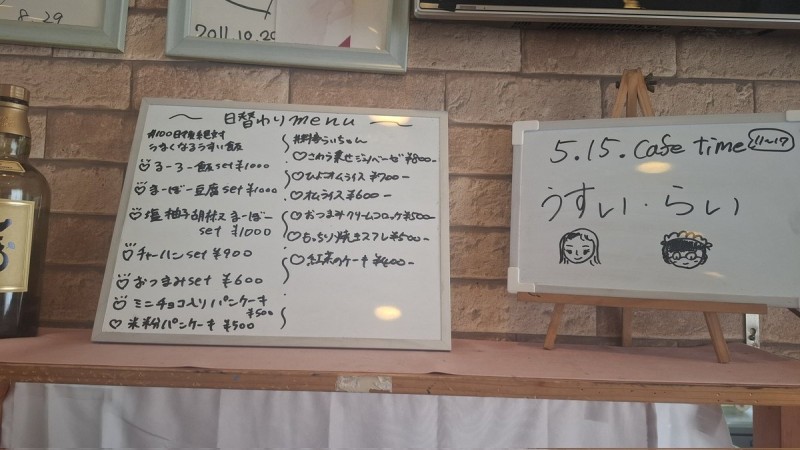 8.29
2011.10.29
〜 日替わりmenu 〜
#100日後絶対
うまくなるうすい飯
♡るーろー飯set ¥1000
♡まーぼー豆腐set ¥1000
♡塩柚子胡椒まーぼー
set ¥1000
♡チャーハンset ¥900
♡おつまみset ¥600
♡ミニチョコ入りパンケーキ
¥500
♡米粉パンケーキ ¥500
らいちゃん
♡ひよオムライス ¥700-
♡オムライス ¥600-
♡おつまみクリームコロッケ ¥500-
♡もっちり焼きスフレ ¥500-
♡紅茶のケーキ ¥400-
5.15. Cafe time 11〜17
うすい・らい